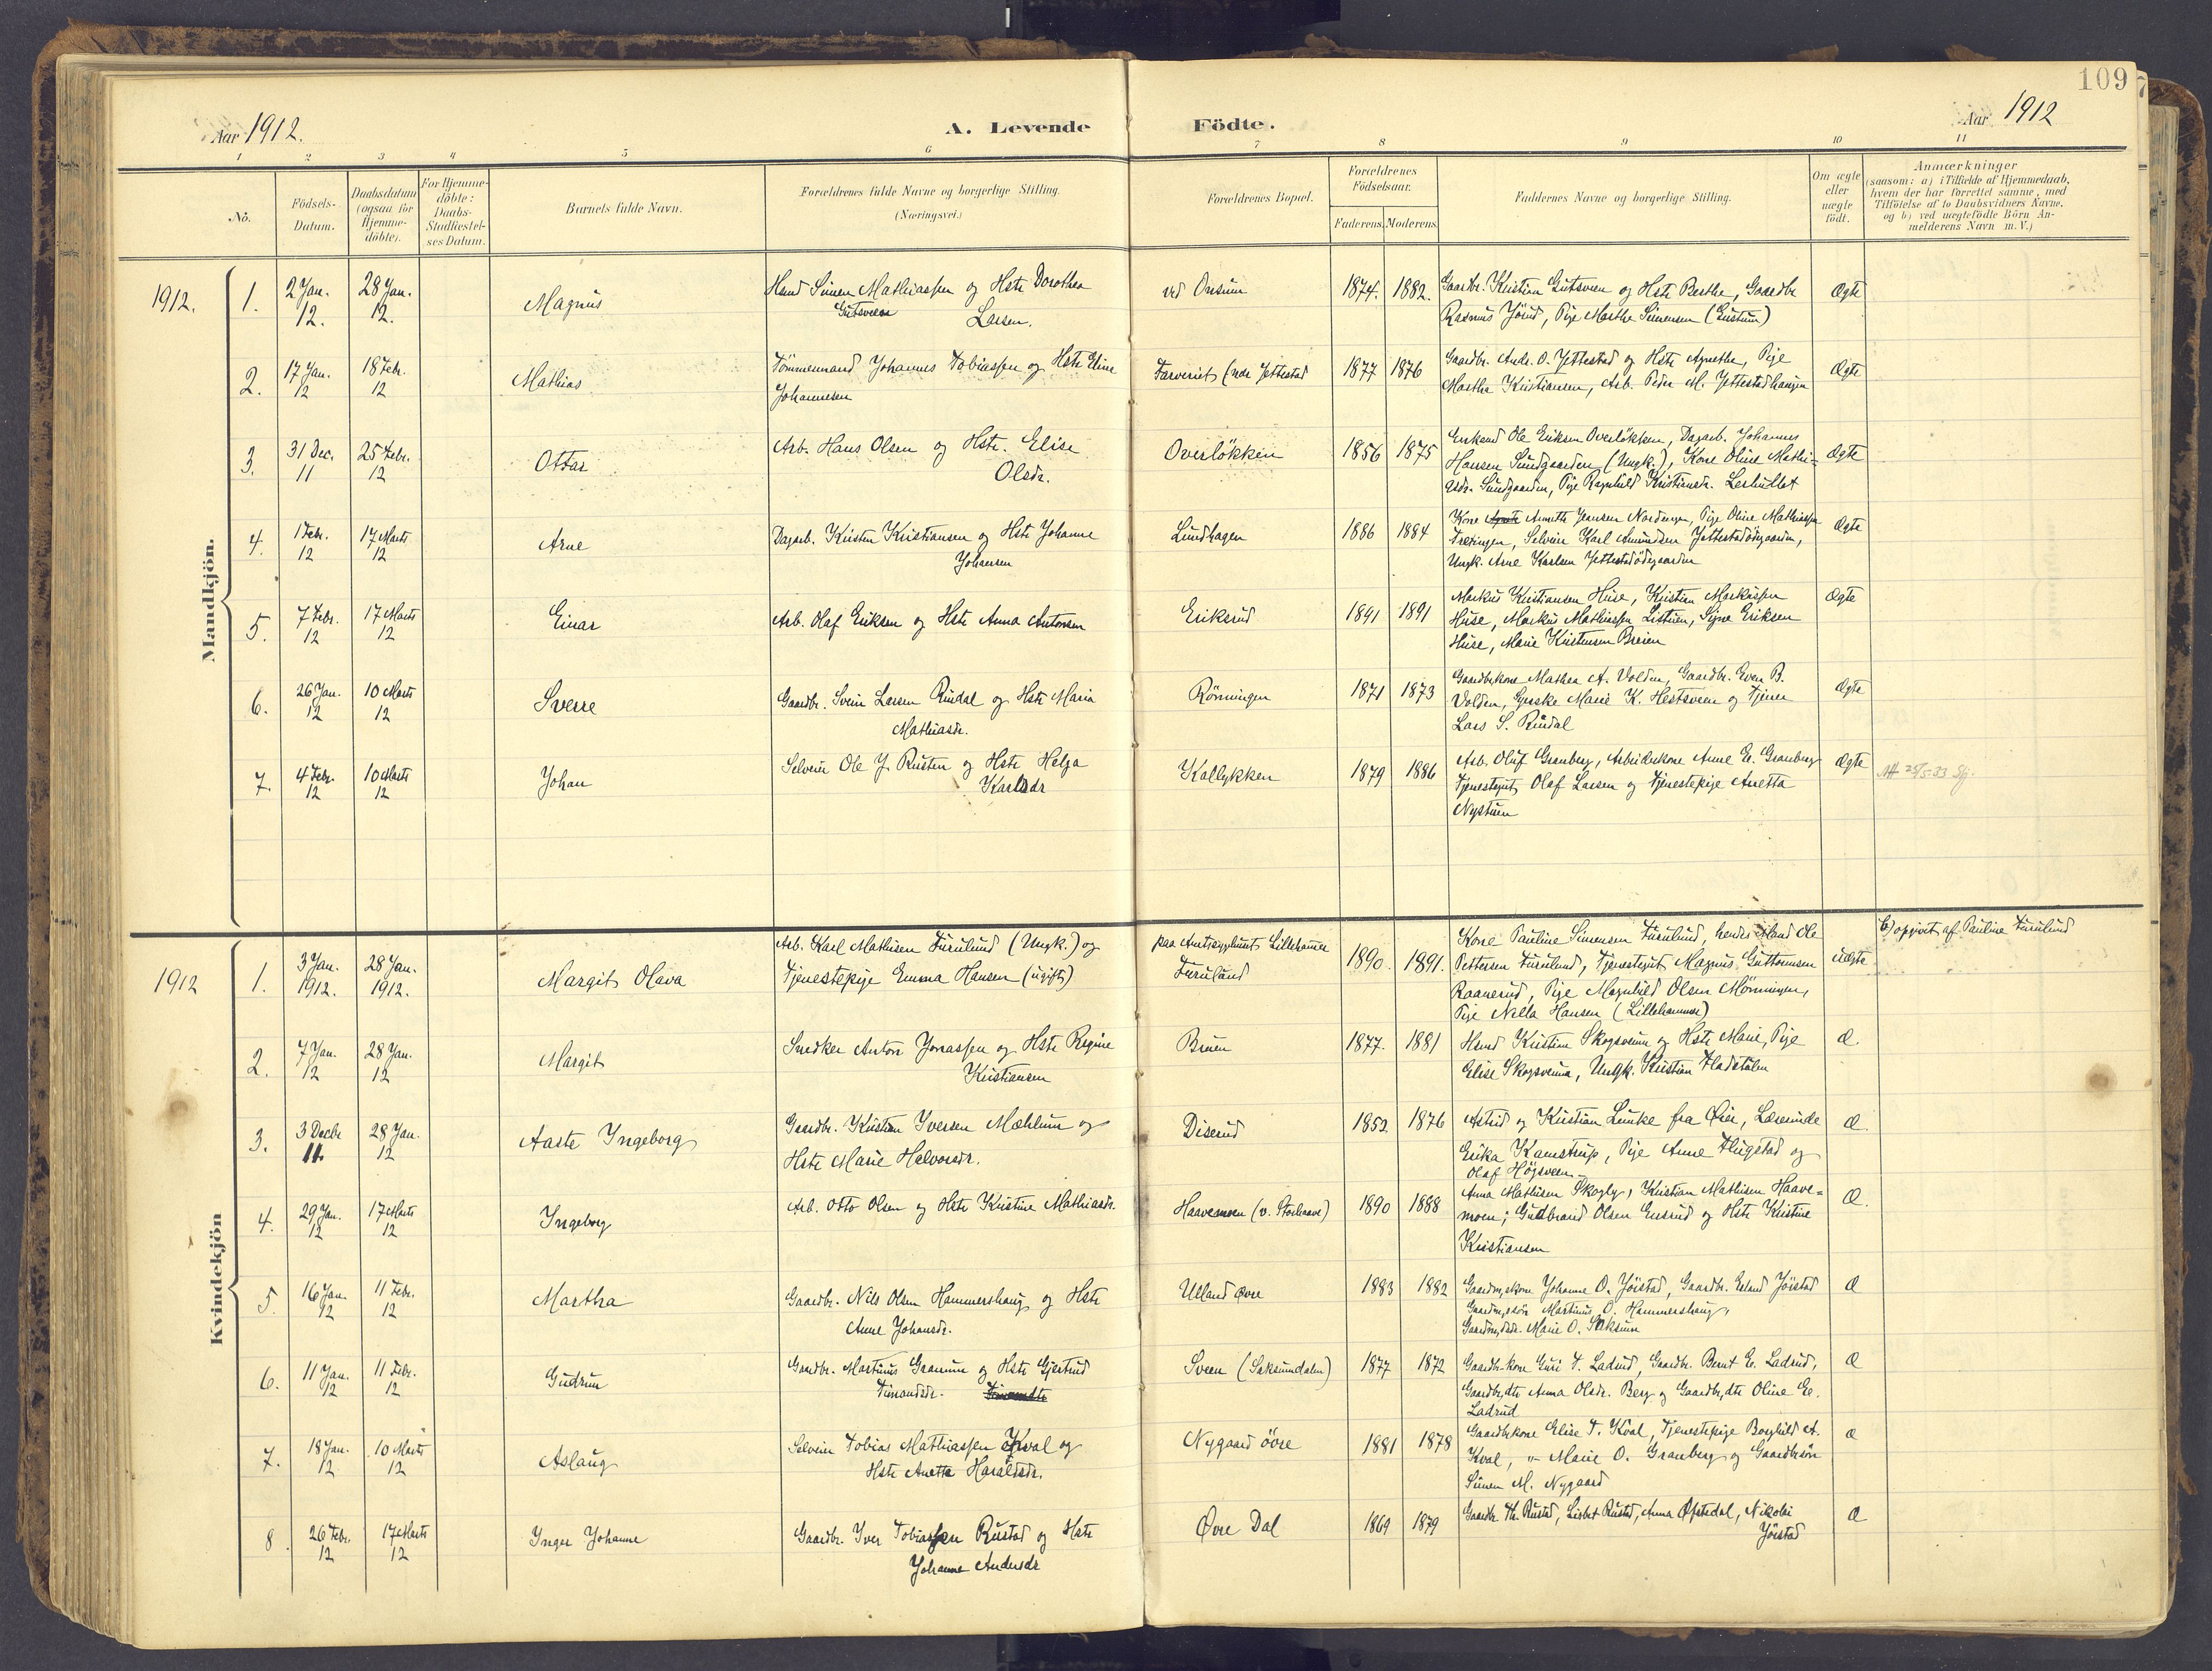 109
Aar 1912.
A. Levende Födte.
Aar 1912
1 2 3 4 5 6 7 8 9 10 11
No.
Födsels-Datum.
Daabsdatum (ogsaa för Hjemme-döbte).
For Hjemme-döbte: Daabs-Stadfæstel-ses Datum.
Barnets fulde Navn.
Forældrenes fulde Navne og borgerlige Stilling.
(Næringsvei.)
Forældrenes Bopæl.
Forældrenes Födselsaar.
Faderens. Moderens.
Faddernes Navne og borgerlige Stilling.
Om ægte eller uægte födt.
Anmærkninger
(saasom: a) i Tilfælde af Hjemmedaab,
hvem der har forrettet samme, med
Tilföielse af to Daabsvidners Navne.
og b) ved uægtefödte Börn An-
melderens Navn m. V.)
Mandkjön.
1912. 1. 2 Jan. 12. 28 Jan. 12. Magnus
Hmd Simen Mathiassen og Hstr Dorothea
Gutsveen Larsen.
ved Onsum 1874. 1882.
Gaardbr. Kristian Gutsveen og Hstr Berthe, Gaardbr
Rasmus Jörud, Pige Marthe Simensen
Ægte
2. 17 Jan. 12 18 Febr. 12 Mathias
Tömmermand Johannes Tobiassen og Hstr Eline
Johannesen
Farveriet (nær Jettestad 1877 1876
Gaardbr. Andr. O. Jettestad og Hstr Agnethe, Pige
Martha Kristiansen, Arb. Peder M. Jettestadhaugen
Ægte
3. 31 Dec. 11 25 Febr. 12 Ottar
Arb. Hans Olsen og Hstr. Elise
Olsdr.
Overlökken 1856 1875
Enkemd Ole Eriksen Overlökken, Dagarb. Johannes
Hansen Sundgaarden (Ungk.), Kone Oline Mathi=
asdr. Sundgaarden, Pige Ragnhild Kristiansdr.
Ægte
4. 1 Febr. 12 17 Marts 12 Arne
Dagarb. Kristen Kristiansen og Hstr Johanne
Johansen
Lundhagen 1886 1884
Kone Annette Jensen Nordengen, Pige Oline Mathiassen
Selveier Karl Amundsen Jettestadödegaarden,
Ungk. Arne Karlsen Jettestadödegaarden
Ægte
5. 7 Febr. 12 17 Marts 12 Einar
Arb. Olaf Eriksen og Hstr Anna Antonsen
Eriksrud 1891 1891
Markus Kristiansen Huse, Kristian Markussen
Huse, Markus Mathiassen Listuen, Signe Eriksen
Huse, Marie Kristensen Breien
Ægte
6. 26 Jan. 12 10 Marts 12 Sverre
Gaardbr. Svein Larsen Rindal og Hstr Maria
Mathiasdr.
Rönningen 1871 1873
Gaardbrkone Mathea A. Volden, Gaardbr. Even B.
Volden, Marie K. Hestsveen og Tjener
Lars S. Rindal
Ægte
7. 4 Febr. 12 10 Marts 12 Johan
Selveier Ole J. Rusten og Hstr Helga
Karlsdr
Kallykken 1879 1886
Arb. Oluf Granberg, Arbeiderkone Anne E. Granberg
Tjenestegut Olaf Larsen og Tjenestepige Anetta
Nystuen
Ægte
Kvindekjön
1912 1. 3 Jan. 1912. 28 Jan. 1912. Margit Olava
Arb. Karl Mathisen Furulund (Ungk.) og
Tjenestepige Emma Hansen (ugift)
paa Amtssygehuset Lillehamer
Furulund
1890. 1891.
Kone Pauline Simensen Furulund, hendes Mand Ole
Pettersen Furulund, Tjenestegut Magnus Guttormsen
Raanerud, Pige Magnhild Olsen
Pige Nilla Hansen (Lillehammer)
uægte
b) opgivet af Pauline Furulund
2. 7 Jan. 12 28 Jan. 12 Margit
Snedker Anton Jonassen og Hstr Regine
Kristiansen
Bruen 1877. 1881
Hmd Kristian Skogsveen og Hstr Marie, Pige
Elise Skogsveen, Ungk. Kristian Fladstulen
Æ.
3. 3 Decbr 11. 28 Jan. 12 Aaste Ingeborg
Gaardbr. Kristian Iversen Mæhlum og
Hstr Marie Halvorsdr.
Diserud 1852 1876
Astrid og Kristian Lunke fra Öier, Lærerinde
Erika Kamstrup, Pige Anne Flugstad og
Olaf Högsveen
Æ.
4. 29 Jan. 12 17 Marts 12 Ingeborg
Arb. Otto Olsen og Hstr Kristine Mathiasdr.
Haavemoen (v. Storhaave) 1890 1888
Anna Mathisen Skogly, Kristian Mathisen Haave=
moen; Gudbrand Olsen Ensrud og Hstr Kristine
Kristiansen
Æ.
5. 16 Jan. 12 11 Febr. 12 Martha
Gaardbr. Nils Olsen Hammershaug og Hstr
Anne Johansdr.
Ulland övre 1883 1882
Johanne O. Jörstad, Gaardbr. Erland Jörstad
Martinus O. Hammershaug,
Marie O. Saksum
Æ
6. 11 Jan. 12 11 Febr. 12 Gudrun
Gaardbr. Martinus Granum og Hstr Gjertrud
Simonsdr.
Sveen (Saksumdalen) 1877 1872
Gaardbrkone Guri T. Ladrud, Gaardbr. Bernt E. Ladrud,
Gaardbrdtr Anna Olsdr. Berg og Gaardbrdtr Oline E.
Ladrud
Æ
7. 18 Jan. 12 10 Marts 12 Aslaug
Selveier Tobias Mathiassen Kval og
Hstr Anette Haraldsdr.
Nygaard övre 1881 1878
Gaardbrkone Elise T. Kval, Tjenestepige Borghild A.
Kval, " Marie O. Granberg og Gaardbrsön
Simen M. Nygaard
Æ
8 26 Febr. 12 17 Marts 12 Inger Johanne
Gaardbr. Iver Tobiassen Rustad og Hstr
Johanne Andersdr
Övre Dal 1869 1879
Gaardbr. Th. Rustad, Lisbet Rustad, Anna Ofstedal, Nikolai
Jörstad
Æ